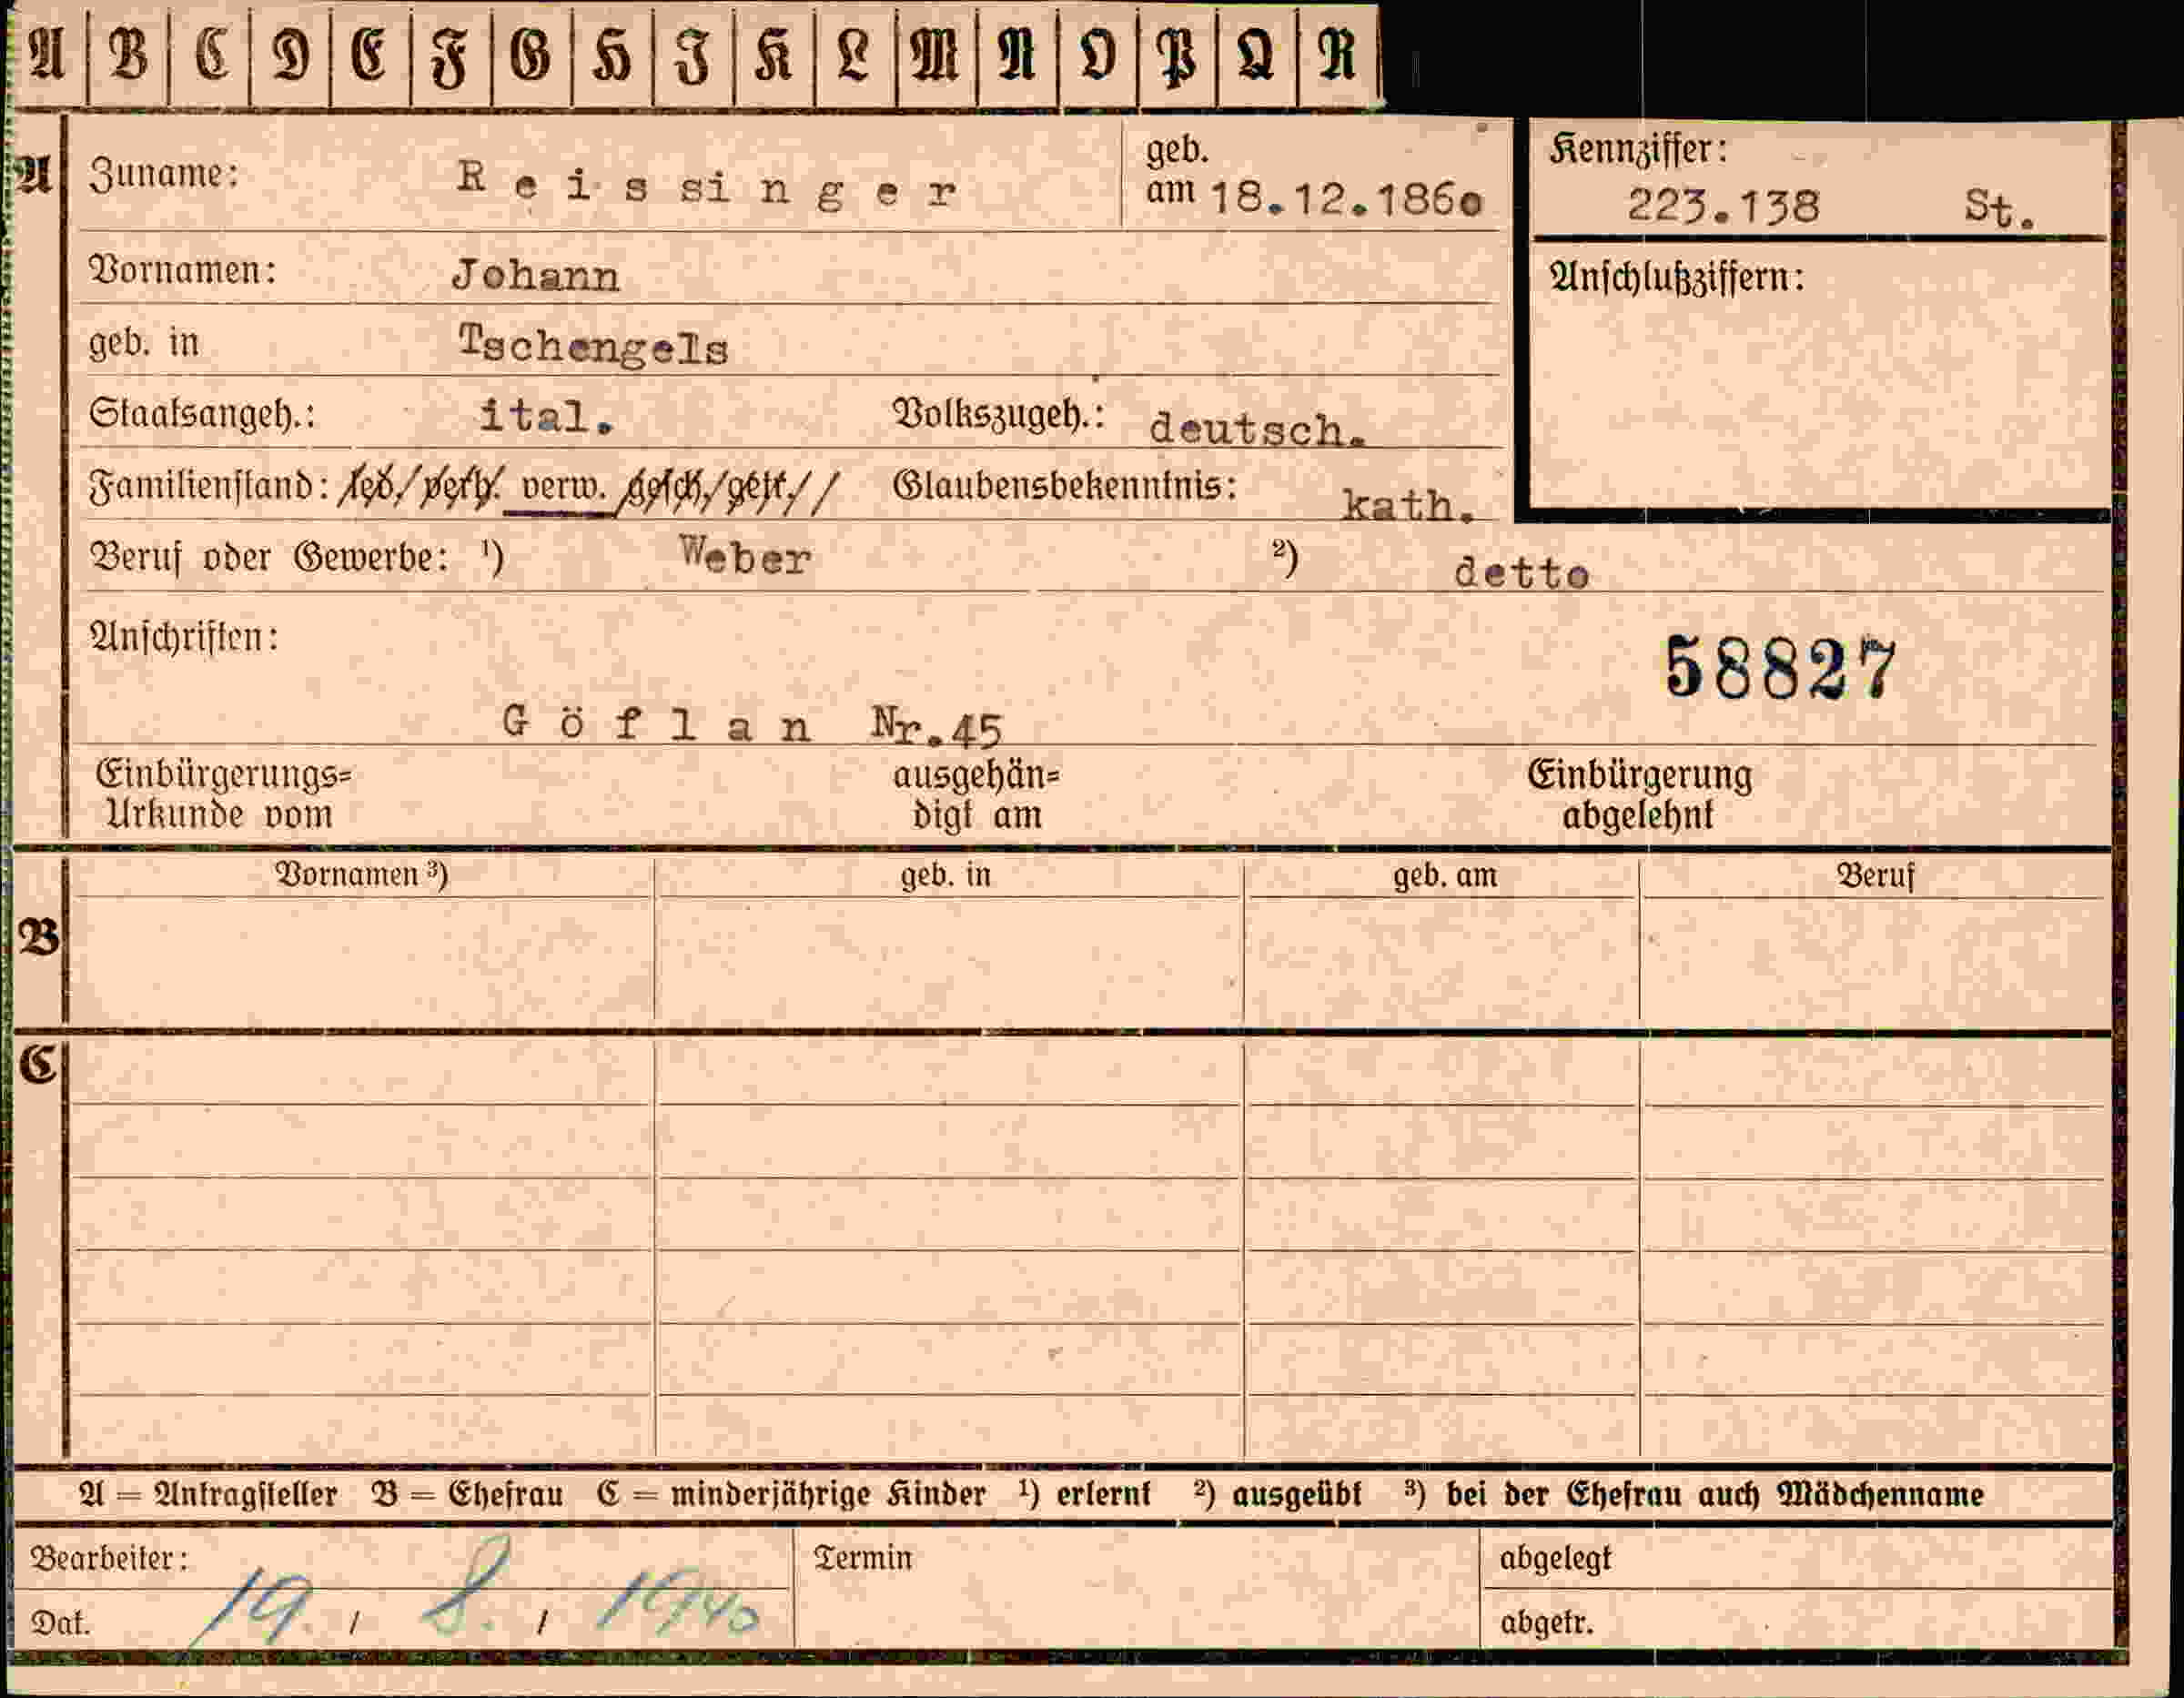 A B C D E F G H I K L M N O P Q R
A Zuname: Reissinger geb. am 18.12.1860 Kennziffer: 223.138 St.
Vornamen: Johann Anschlußziffern:
geb. in Tschengels
Staatsangeh.: ital. Volkszugeh.: deutsch.
Familienstand: led. verh. verw. gesch. getr. Glaubensbekenntnis: kath.
Beruf oder Gewerbe: ¹) Weber ²) detto
Anschriften: 58827
Göflan Nr.45
Einbürgerungs= ausgehän= Einbürgerung
Urkunde vom digt am abgelehnt
Vornamen ³) geb. in geb. am Beruf
B
C
A = Antragsteller B = Ehefrau C = minderjährige Kinder ¹) erlernt ²) ausgeübt ³) bei der Ehefrau auch Mädchenname
Bearbeiter: Termin abgelegt
Dat. 19. / 8. / 1940 abgetr.